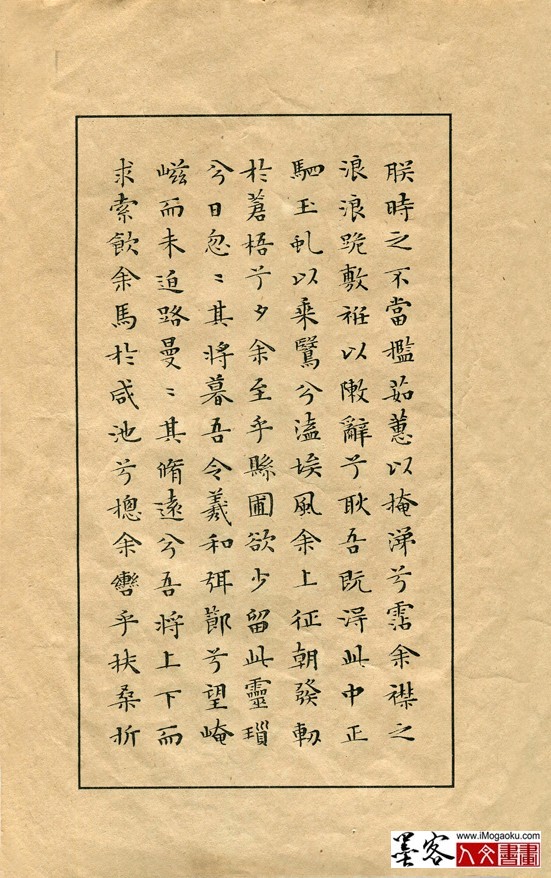 朕時之不當攬茹蕙以掩涕兮霑余襟之
浪浪跪敷衽以陳辭兮耿吾既得此中正
駟玉虬以乘鷖兮溘埃風余上征朝發軔
於蒼梧兮夕余至乎縣圃欲少留此靈瑣
兮日忽〻其將暮吾令羲和弭節兮望崦
嵫而未迫路曼〻其脩遠兮吾將上下而
求索飲余馬於咸池兮摠余轡乎扶桑折
墨客
www.iMogaoku.com
人文書畫